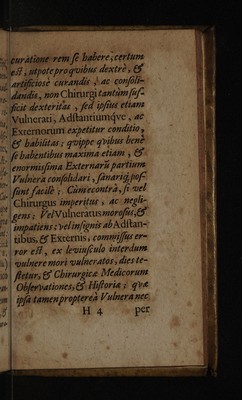 curatione rem se habere; certum
est, utpote pro qvibus dextrè, &
artificiosè curandis, ac consoli-
dandis, non Chirurgi tantùm suf-
ficit dexteritas, sed ipsius etiam
Vulnerati, Adstantiumqve, ac
Externorum expetitur conditio,
& habilitas; qvippe qvibus benè
se habentibus maxima etiam, &
enormissima Externarũ partium
Vulnera consolidari, sanariq, pos-
sunt facilè: Cùm econtrà, si vel
Chirurgus imperitus, ac negli-
gens; Vel Vulneratus morosus, &
impatiens: vel insignis ab Adstan-
tibus, & Externis, commissus er-
ror est, ex leviusculo interdum
vulnere mori vulneratos, dies te-
stetur, & Chirurgicæ Medicorum
Observationes, & Historiæ; qvæ
ipsa tamen propterea Vulnera nec
H 4 per